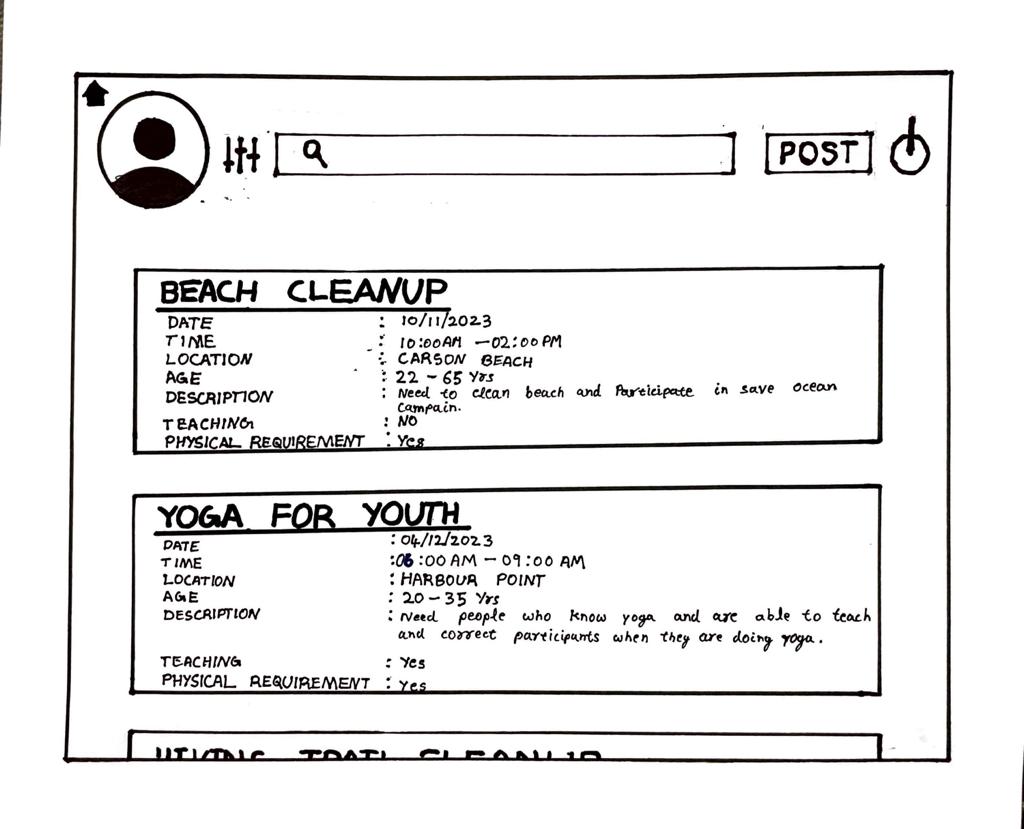 POST
BEACH CLEANUP
DATE : 10/11/2023
TIME : 10:00AM - 02:00 PM
LOCATION : CARSON BEACH
AGE : 22 - 65 Yrs
DESCRIPTION : Need to clean beach and Participate in save ocean
campain.
TEACHING : NO
PHYSICAL REQUIREMENT : Yes
YOGA FOR YOUTH
DATE : 04/12/2023
TIME : 06:00 AM - 09:00 AM
LOCATION : HARBOUR POINT
AGE : 20 - 35 Yrs
DESCRIPTION : Need people who know yoga and are able to teach
and correct participants when they are doing yoga.
TEACHING : Yes
PHYSICAL REQUIREMENT : Yes
HIKING TRAIL CLEANUP